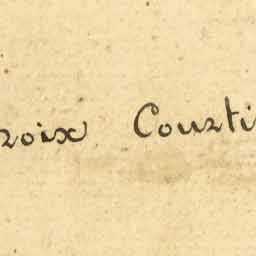 roix Courti